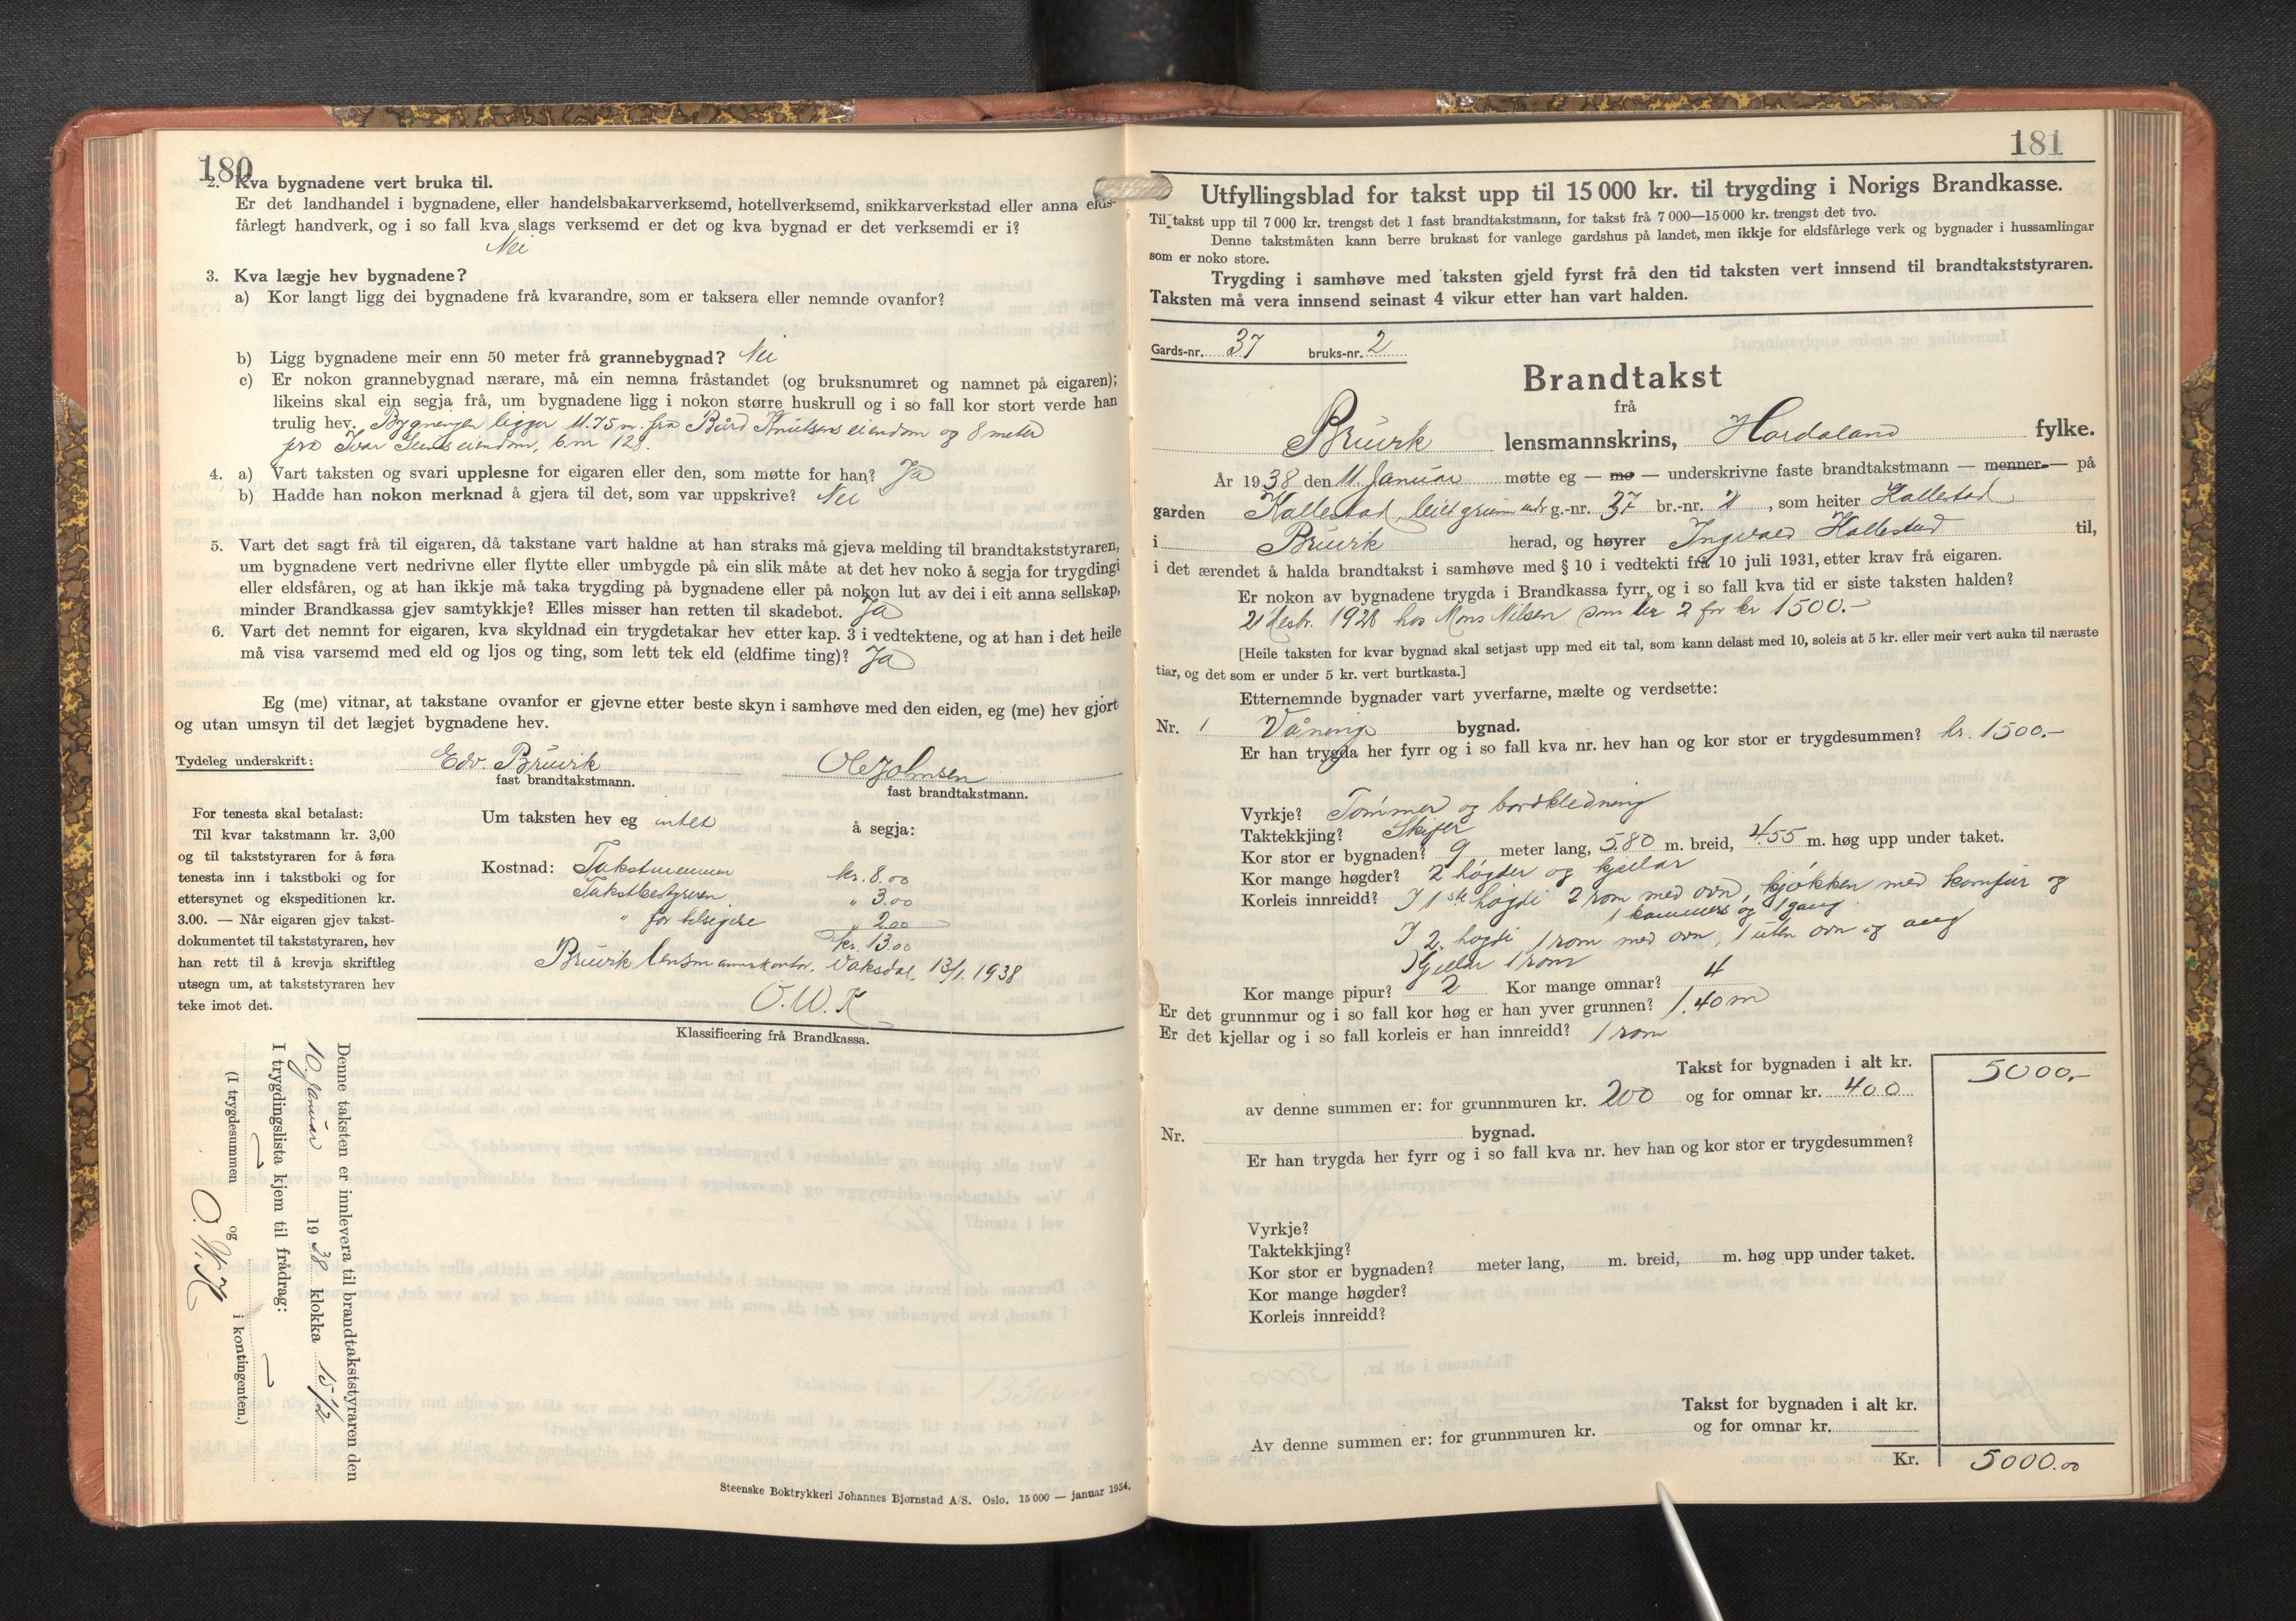 180
2. Kva bygnadene vert bruka til.
Er det landhandel i bygnadene, eller handelsbakarverksemd, hotellverksemd, snikkarverkstad eller anna elds-
fårlegt handverk, og i so fall kva slags verksemd er det og kva bygnad er det verksemdi er i?
Nei
3. Kva lægje hev bygnadene?
a) Kor langt ligg dei bygnadene frå kvarandre, som er taksera eller nemnde ovanfor?
b) Ligg bygnadene meir enn 50 meter frå grannebygnad? Nei
c) Er nokon grannebygnad nærare, må ein nemna fråstandet (og bruksnumret og namnet på eigaren);
likeins skal ein segja frå, um bygnadene ligg i nokon større huskrull og i so fall kor stort verde han
trulig hev. Bygningen ligger 11.75 m. fra Bård Knutsens eiendom og 8 meter
fra Ivar eiendom, b.nr 128.
4. a) Vart taksten og svari upplesne for eigaren eller den, som møtte for han? Ja
b) Hadde han nokon merknad å gjera til det, som var uppskrive? Nei
5. Vart det sagt frå til eigaren, då takstane vart haldne at han straks må gjeva melding til brandtakststyraren,
um bygnadene vert nedrivne eller flytte eller umbygde på ein slik måte at det hev noko å segja for trygdingi
eller eldsfåren, og at han ikkje må taka trygding på bygnadene eller på nokon lut av dei i eit anna sellskap,
minder Brandkassa gjev samtykkje? Elles misser han retten til skadebot. Ja
6. Vart det nemnt for eigaren, kva skyldnad ein trygdetakar hev etter kap. 3 i vedtektene, og at han i det heile
må visa varsemd med eld og ljos og ting, som lett tek eld (eldfime ting)? Ja
Eg (me) vitnar, at takstane ovanfor er gjevne etter beste skyn i samhøve med den eiden, eg (me) hev gjort
og utan umsyn til det lægjet bygnadene hev.
Tydeleg underskrift: Edv. Bruvik Ole Johnsen
fast brandtakstmann. fast brandtakstmann.
For tenesta skal betalast:
Til kvar takstmann kr. 3,00
og til takststyraren for å føra
tenesta inn i takstboki og for
ettersynet og ekspeditionen kr.
3.00. — Når eigaren gjev takst-
dokumentet til takststyraren, hev
han rett til å krevja skriftleg
utsegn um, at takststyraren hev
teke imot det.
Um taksten hev eg intet å segja:
Kostnad: Takstmennen kr. 8.00
Takstbestyreren " 3.00
" for bilegere " 2.00
kr. 13.00
Bruvik lensmannskontor, Vaksdal, 13/1. 1938
O. W. K
Klassificering frå Brandkassa.
Denne taksten er innlevera til brandtakststyraren den
10. januar 1938 klokka 15 1/2
I trygdingslista kjem til frådrag:
(I trygdesummen og i kontingenten.)
O. W. K
Steenske Boktrykkeri Johannes Bjørnstad A/S. Oslo. 15 000 — januar 1934.
181
Utfyllingsblad for takst upp til 15 000 kr. til trygding i Norigs Brandkasse.
Til takst upp til 7 000 kr. trengst det 1 fast brandtakstmann, for takst frå 7 000—15 000 kr. trengst det tvo.
Denne takstmåten kann berre brukast for vanlege gardshus på landet, men ikkje for eldsfårlege verk og bygnader i hussamlingar
som er noko store.
Trygding i samhøve med taksten gjeld fyrst frå den tid taksten vert innsend til brandtakststyraren.
Taksten må vera innsend seinast 4 vikur etter han vart halden.
Gards-nr. 37 bruks-nr. 2
Brandtakst
frå
Bruvik lensmannskrins, Hordaland fylke.
År 1938 den 11. Januar møtte eg — me — underskrivne faste brandtakstmann — menner — på
garden Hallestad, leiet grunn und. g.-nr. 37 br.-nr. 2, som heiter Hallestad
i Bruvik herad, og høyrer Ingvald Hallestad til,
i det ærendet å halda brandtakst i samhøve med § 10 i vedtekti frå 10 juli 1931, etter krav frå eigaren.
Er nokon av bygnadene trygda i Brandkassa fyrr, og i so fall kva tid er siste taksten halden?
21 desbr. 1928 hos Mons Nilsen som br 2 for kr 1500.-
[Heile taksten for kvar bygnad skal setjast upp med eit tal, som kann delast med 10, soleis at 5 kr. eller meir vert auka til næraste
tiar, og det som er under 5 kr. vert burtkasta.]
Etternemnde bygnader vart yverfarne, mælte og verdsette:
Nr. 1 Vånings bygnad.
Er han trygda her fyrr og i so fall kva nr. hev han og kor stor er trygdesummen? kr. 1500,-
Vyrkje? Tømmer og bordkledning
Taktekkjing? Skifer
Kor stor er bygnaden? 9 meter lang, 5.80 m. breid, 4.55 m. høg upp under taket.
Kor mange høgder? 2 høgder og kjellar
Korleis innreidd? I 1ste høgdi 2 rom med ovn, kjøkken med komfur og
1 kammers og 1 gang
I 2. høgdi 1 rom med ovn, 1 uten ovn og gang
Kjellar 1 rom
Kor mange pipur? 2 Kor mange omnar? 4
Er det grunnmur og i so fall kor høg er han yver grunnen? 1.40 m
Er det kjellar og i so fall korleis er han innreidd? 1 rom
Takst for bygnaden i alt kr. 5000.-
av denne summen er: for grunnmuren kr. 200 og for omnar kr. 400
Nr. bygnad.
Er han trygda her fyrr og i so fall kva nr. hev han og kor stor er trygdesummen?
Vyrkje?
Taktekkjing?
Kor stor er bygnaden? meter lang, m. breid, m. høg upp under taket.
Kor mange høgder?
Korleis innreidd?
Takst for bygnaden i alt kr.
Av denne summen er: for grunnmuren kr. og for omnar kr.
Kr. 5000.00